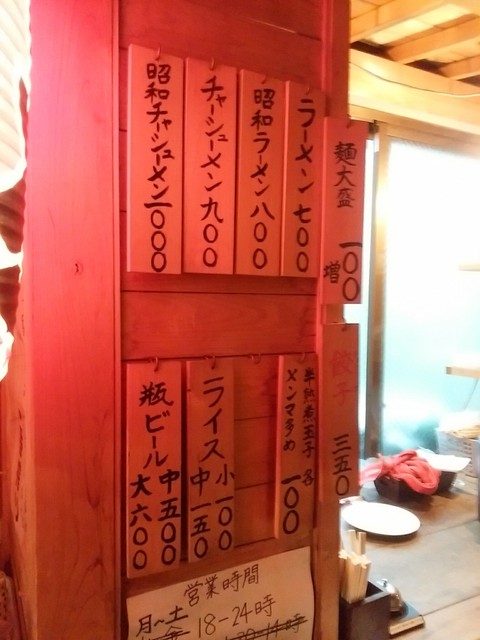 麺大盛 一〇〇増
ラーメン 七〇〇
昭和ラーメン 八〇〇
チャーシューメン 九〇〇
昭和チャーシューメン 一〇〇〇
餃子 三五〇
半熟煮玉子 各一〇〇
メンマ多め
ライス 小一〇〇
中一五〇
瓶ビール 中五〇〇
大六〇〇
営業時間
月〜土
18-24時